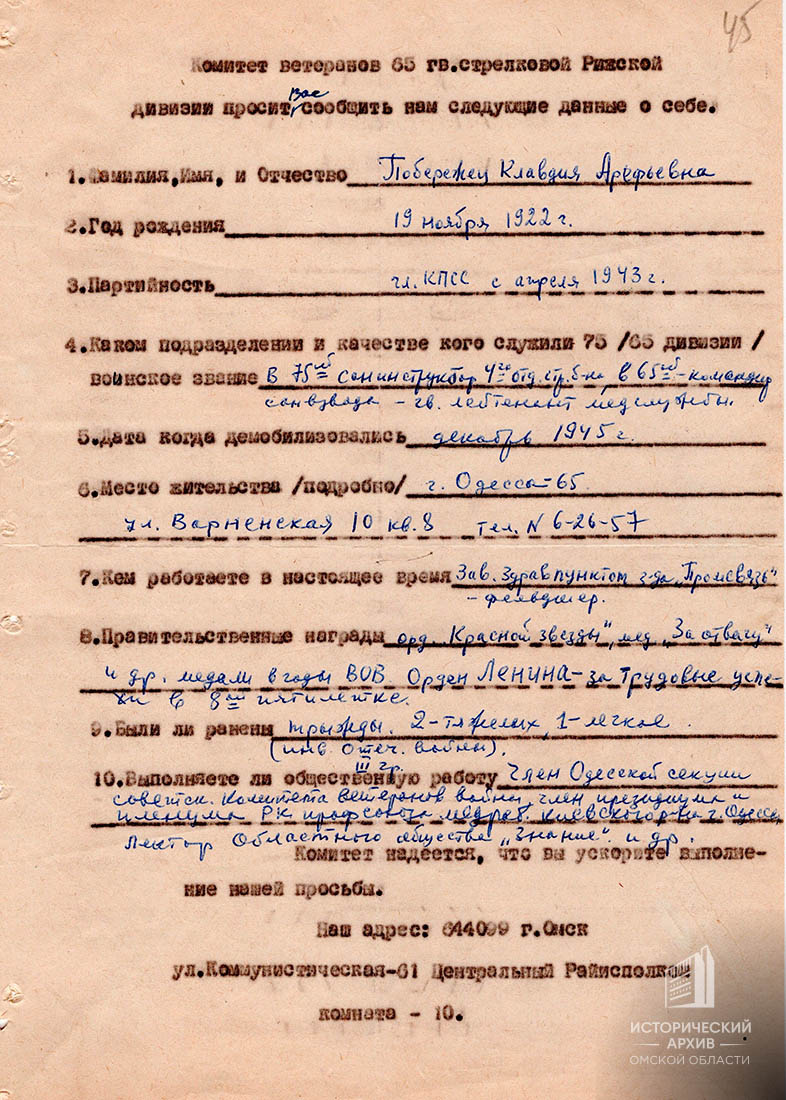 45
Комитет ветеранов 65 гв.стрелковой Рижской
Вас
дивизии просит сообщить нам следующие данные о себе.
1.Фамилия,Имя, и Отчество Побережец Клавдия Арефьевна
2.Год рождения 19 ноября 1922 г.
3.Партийность чл. КПСС с апреля 1943 г.
4.Каком подразделении и качестве кого служили 75 /65 дивизии /
воинское звание В 75ой санинструктор 4го отд. стр. б-на, в 65ой - командир
санвзвода - гв. лейтенант медслужбы.
5.Дата когда демобилизовались декабрь 1945 г.
6.Место жительства /подробно/ г. Одесса-65
ул. Варненская 10 кв. 8 тел. N 6-26-57
7.Кем работаете в настоящее время Зав. здравпунктом з-да „Промсвязь"
- фельдшер.
8.Правительственные награды орд. „Красной звезды", мед. „За отвагу"
и др. медали в годы ВОВ. Орден Ленина - за трудовые успе-
хи в 8ой пятилетке.
9.Были ли ранены трижды. 2-тяжелых, 1-легкое.
(инв. Отеч. войны).
III гр.
10.Выполняете ли общественную работу Член Одесской секции
советск. комитета ветеранов войны, член президиума и
пленума РК профсоюза медраб. Киевского р-на г. Одессы,
лектор Областного общества „Знание" и др.
Комитет надеется, что вы ускорите выполне-
ние нашей просьбы.
Наш адрес: 644099 г.Омск
ул.Коммунистическая-61 Центральный Райисполком
комната - 10.
ИСТОРИЧЕСКИЙ
АРХИВ
ОМСКОЙ ОБЛАСТИ